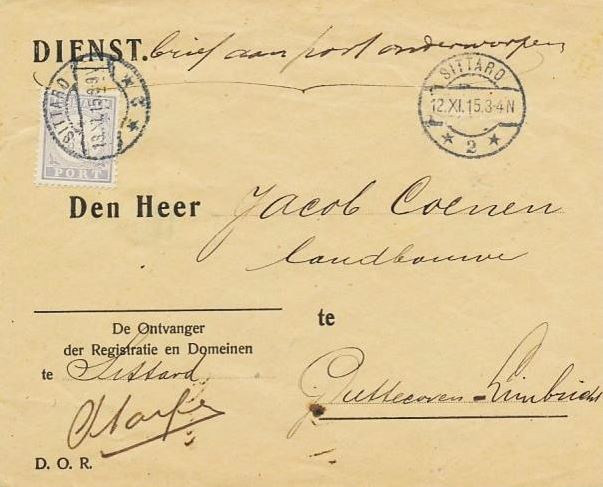 DIENST. brief aan port onderworpen
SITTARD
12.XI.15.3-4N
* 2 *
SITTARD
PORT
Den Heer Jacob Coenen
landbouwer
te
Guttecoven-Limbricht
De Ontvanger
der Registratie en Domeinen
te Sittard
D. O. R.